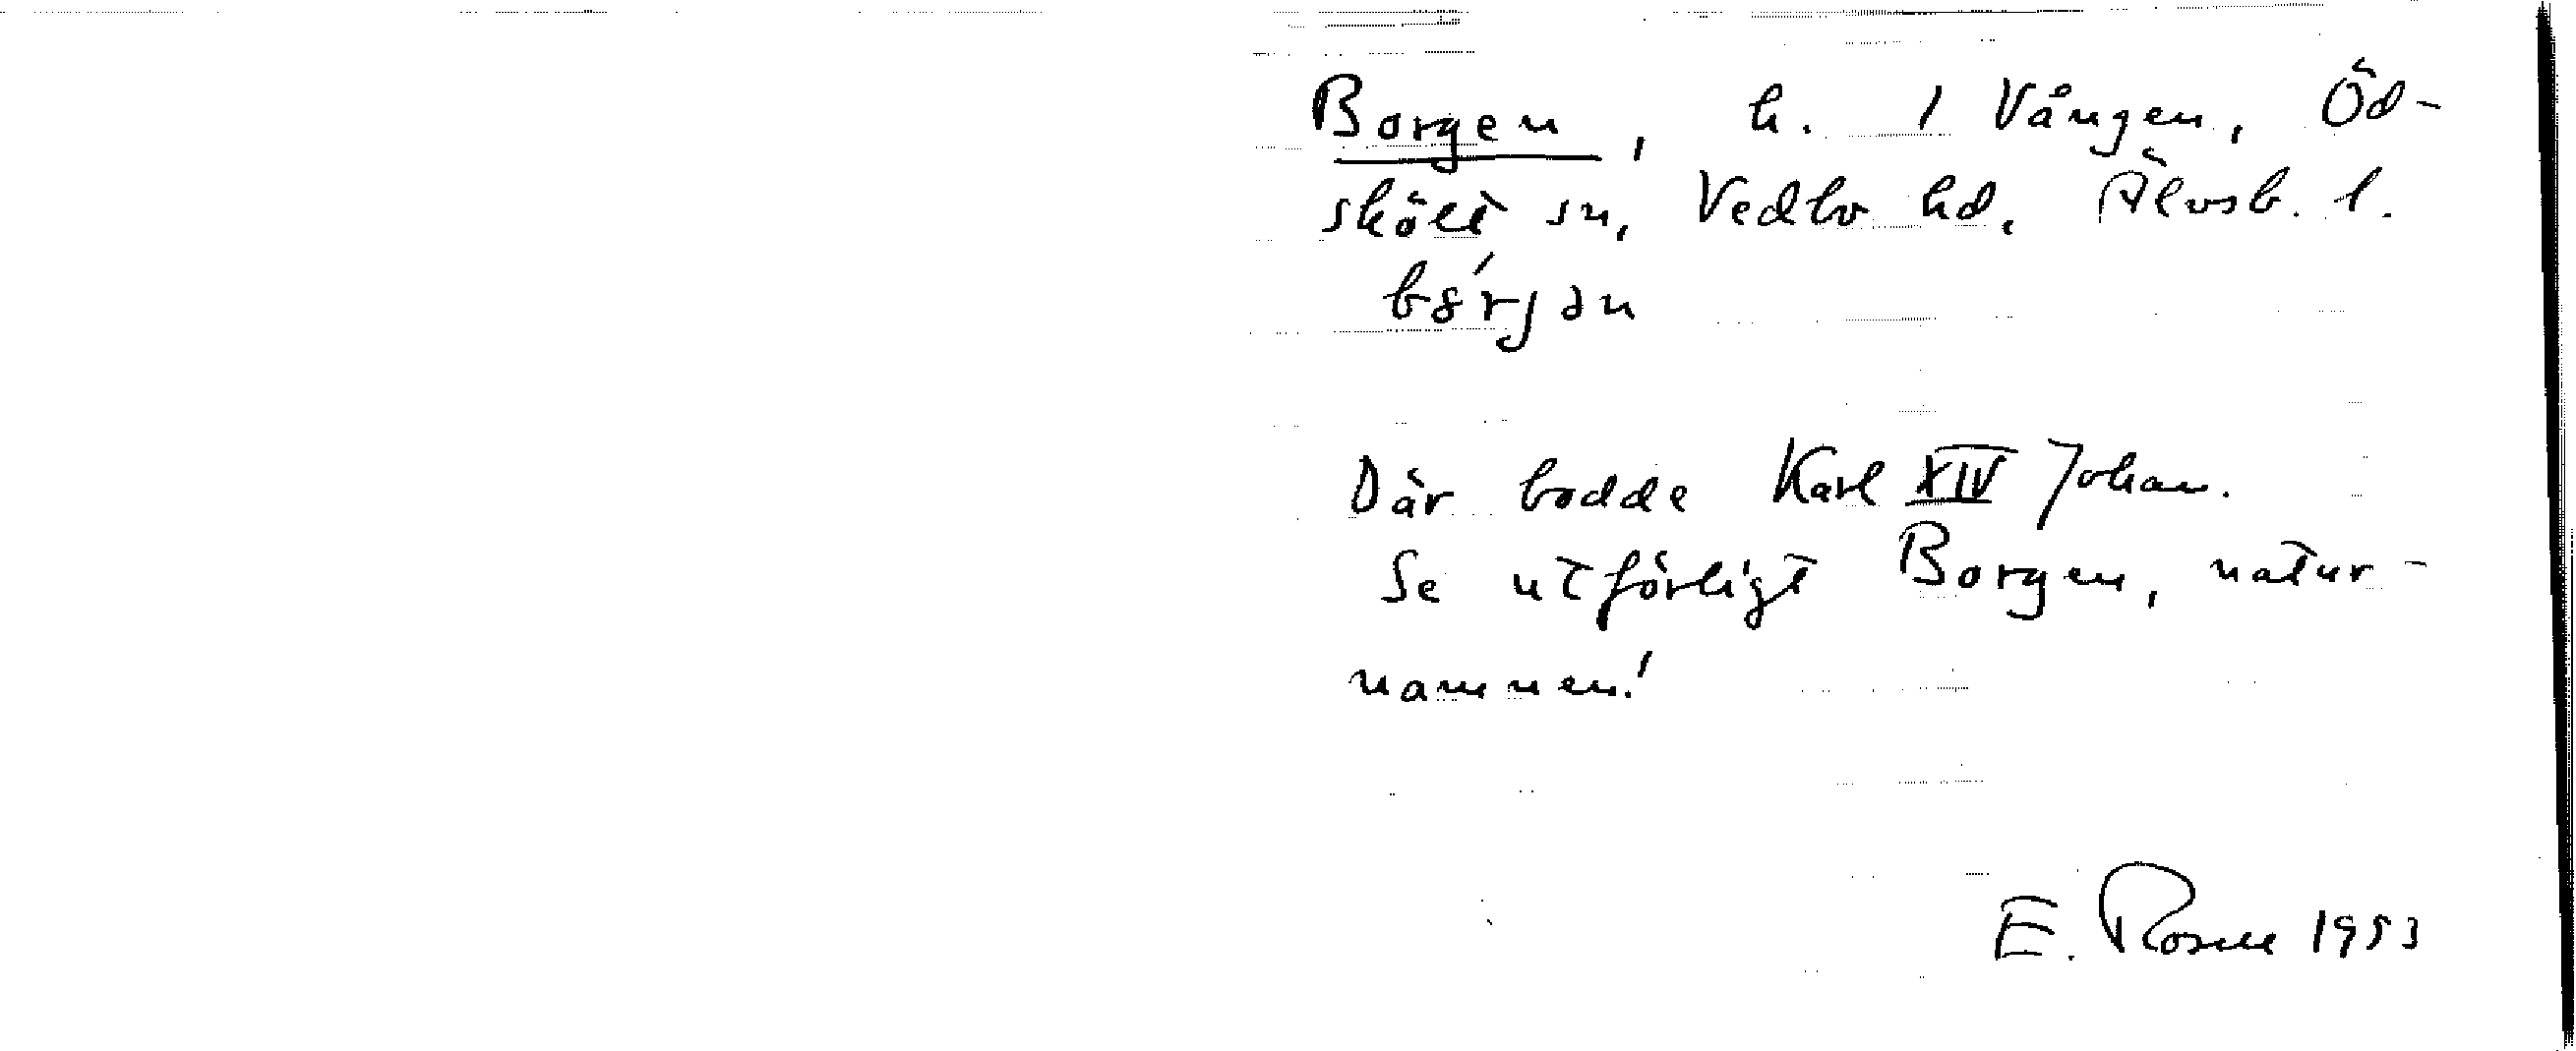 Borgen, h. 1 Vången, Öd-
skölt sn, Vedbo hd, Älvsb. l.
Där bodde Karl XIV Johan.
Se utförligt Borgen, natur-
namnen!
E. Rosell 1953